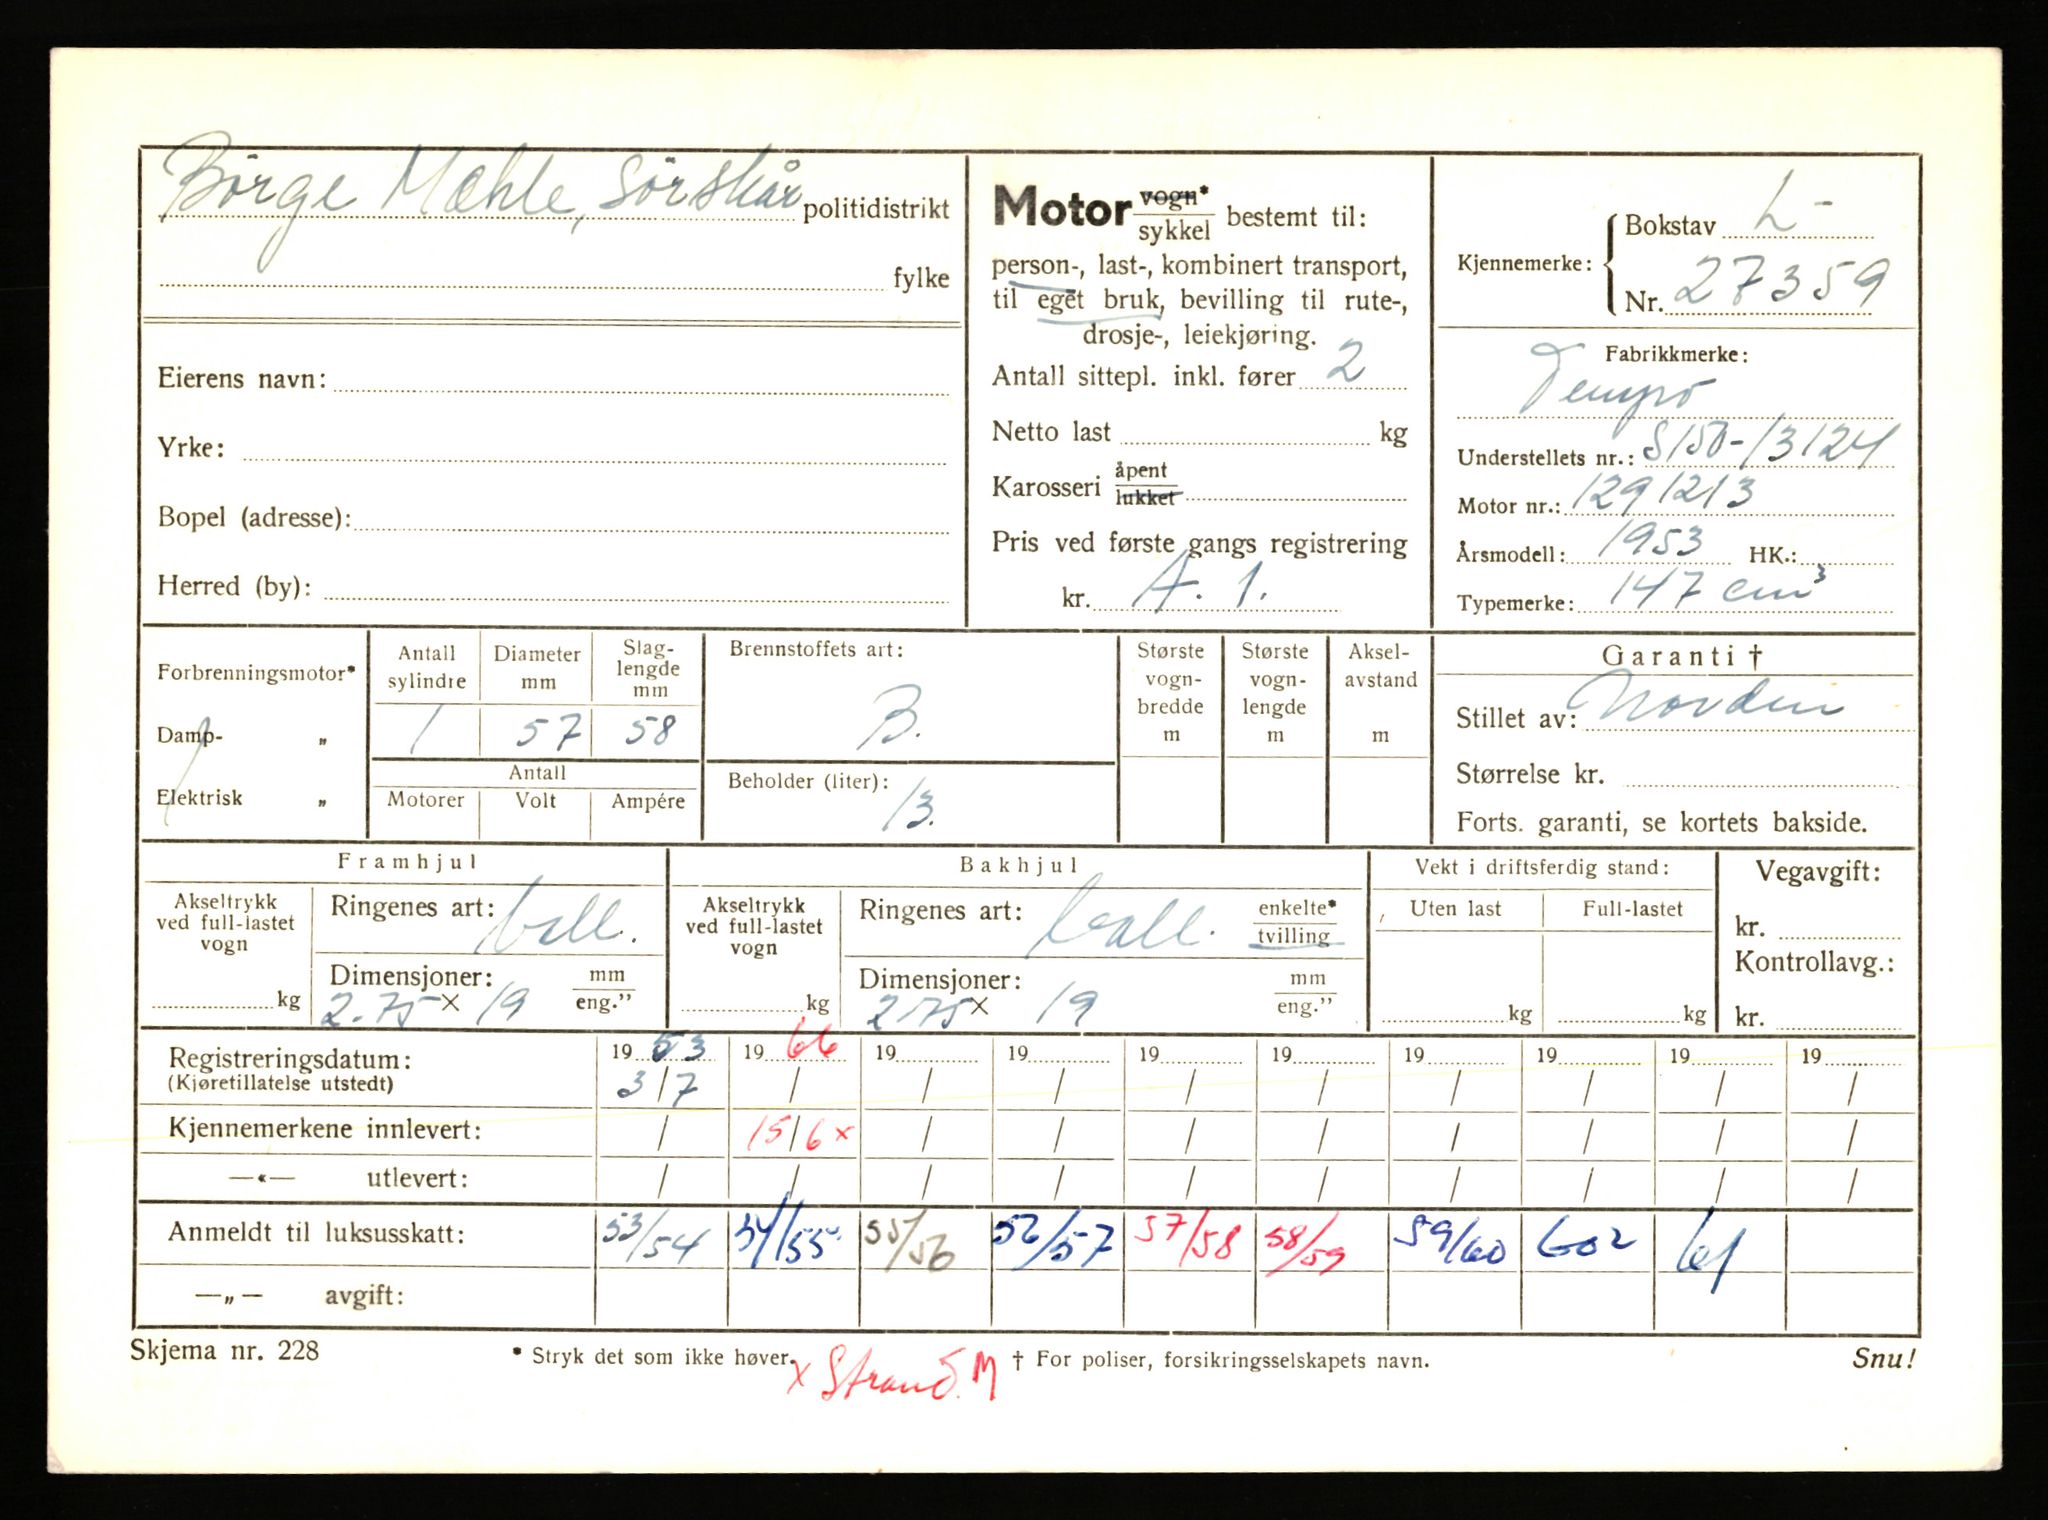 Börge Mæhle, Sörskår politidistrikt
fylke
Eierens navn:
Yrke:
Bopel (adresse):
Herred (by):
Motor vogn* sykkel bestemt til:
person-, last-, kombinert transport,
til eget bruk, bevilling til rute-,
drosje-, leiekjøring.
Antall sittepl. inkl. fører 2
Netto last kg
Karosseri åpent lukket
Pris ved første gangs registrering
kr. A. 1.
Kjennemerke: Bokstav L-
Nr. 27359
Fabrikkmerke:
Tempo
Understellets nr.: S150-13124
Motor nr.: 1291213
Årsmodell: 1953 HK.:
Typemerke: 147 cm³
Forbrenningsmotor*
Damp- „
Elektrisk „
Antall sylindre Diameter mm Slag-lengde mm
1 57 58
Antall
Motorer Volt Ampére
Brennstoffets art:
B.
Beholder (liter):
13.
Største vogn-bredde m
Største vogn-lengde m
Aksel-avstand m
Garanti †
Stillet av: Norden
Størrelse kr.
Forts. garanti, se kortets bakside.
Framhjul
Akseltrykk ved full-lastet vogn
kg
Ringenes art: ball.
Dimensjoner: mm eng."
2.75 x 19
Bakhjul
Akseltrykk ved full-lastet vogn
kg
Ringenes art: ball. enkelte* tvilling
Dimensjoner: mm eng."
2.75 x 19
Vekt i driftsferdig stand:
Uten last Full-lastet
kg kg
Vegavgift:
kr.
Kontrollavg.:
kr.
Registreringsdatum: 19 53 19 66 19 19 19 19 19 19 19 19
(Kjøretillatelse utstedt) 3/7 / / / / / / / / /
Kjennemerkene innlevert: / 15/6 x / / / / / / / /
—«— utlevert: / / / / / / / / / /
Anmeldt til luksusskatt: 53/54 54/55 55/56 56/57 57/58 58/59 59/60 602 61
—„— avgift:
Skjema nr. 228 * Stryk det som ikke høver. † For poliser, forsikringsselskapets navn. Snu!
x Strand. M